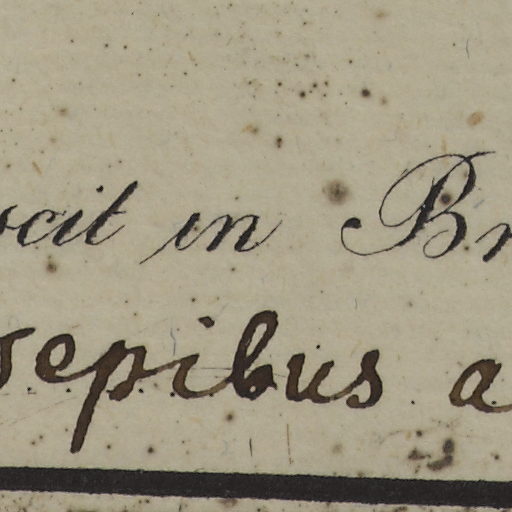 scit in Br
sepibus a